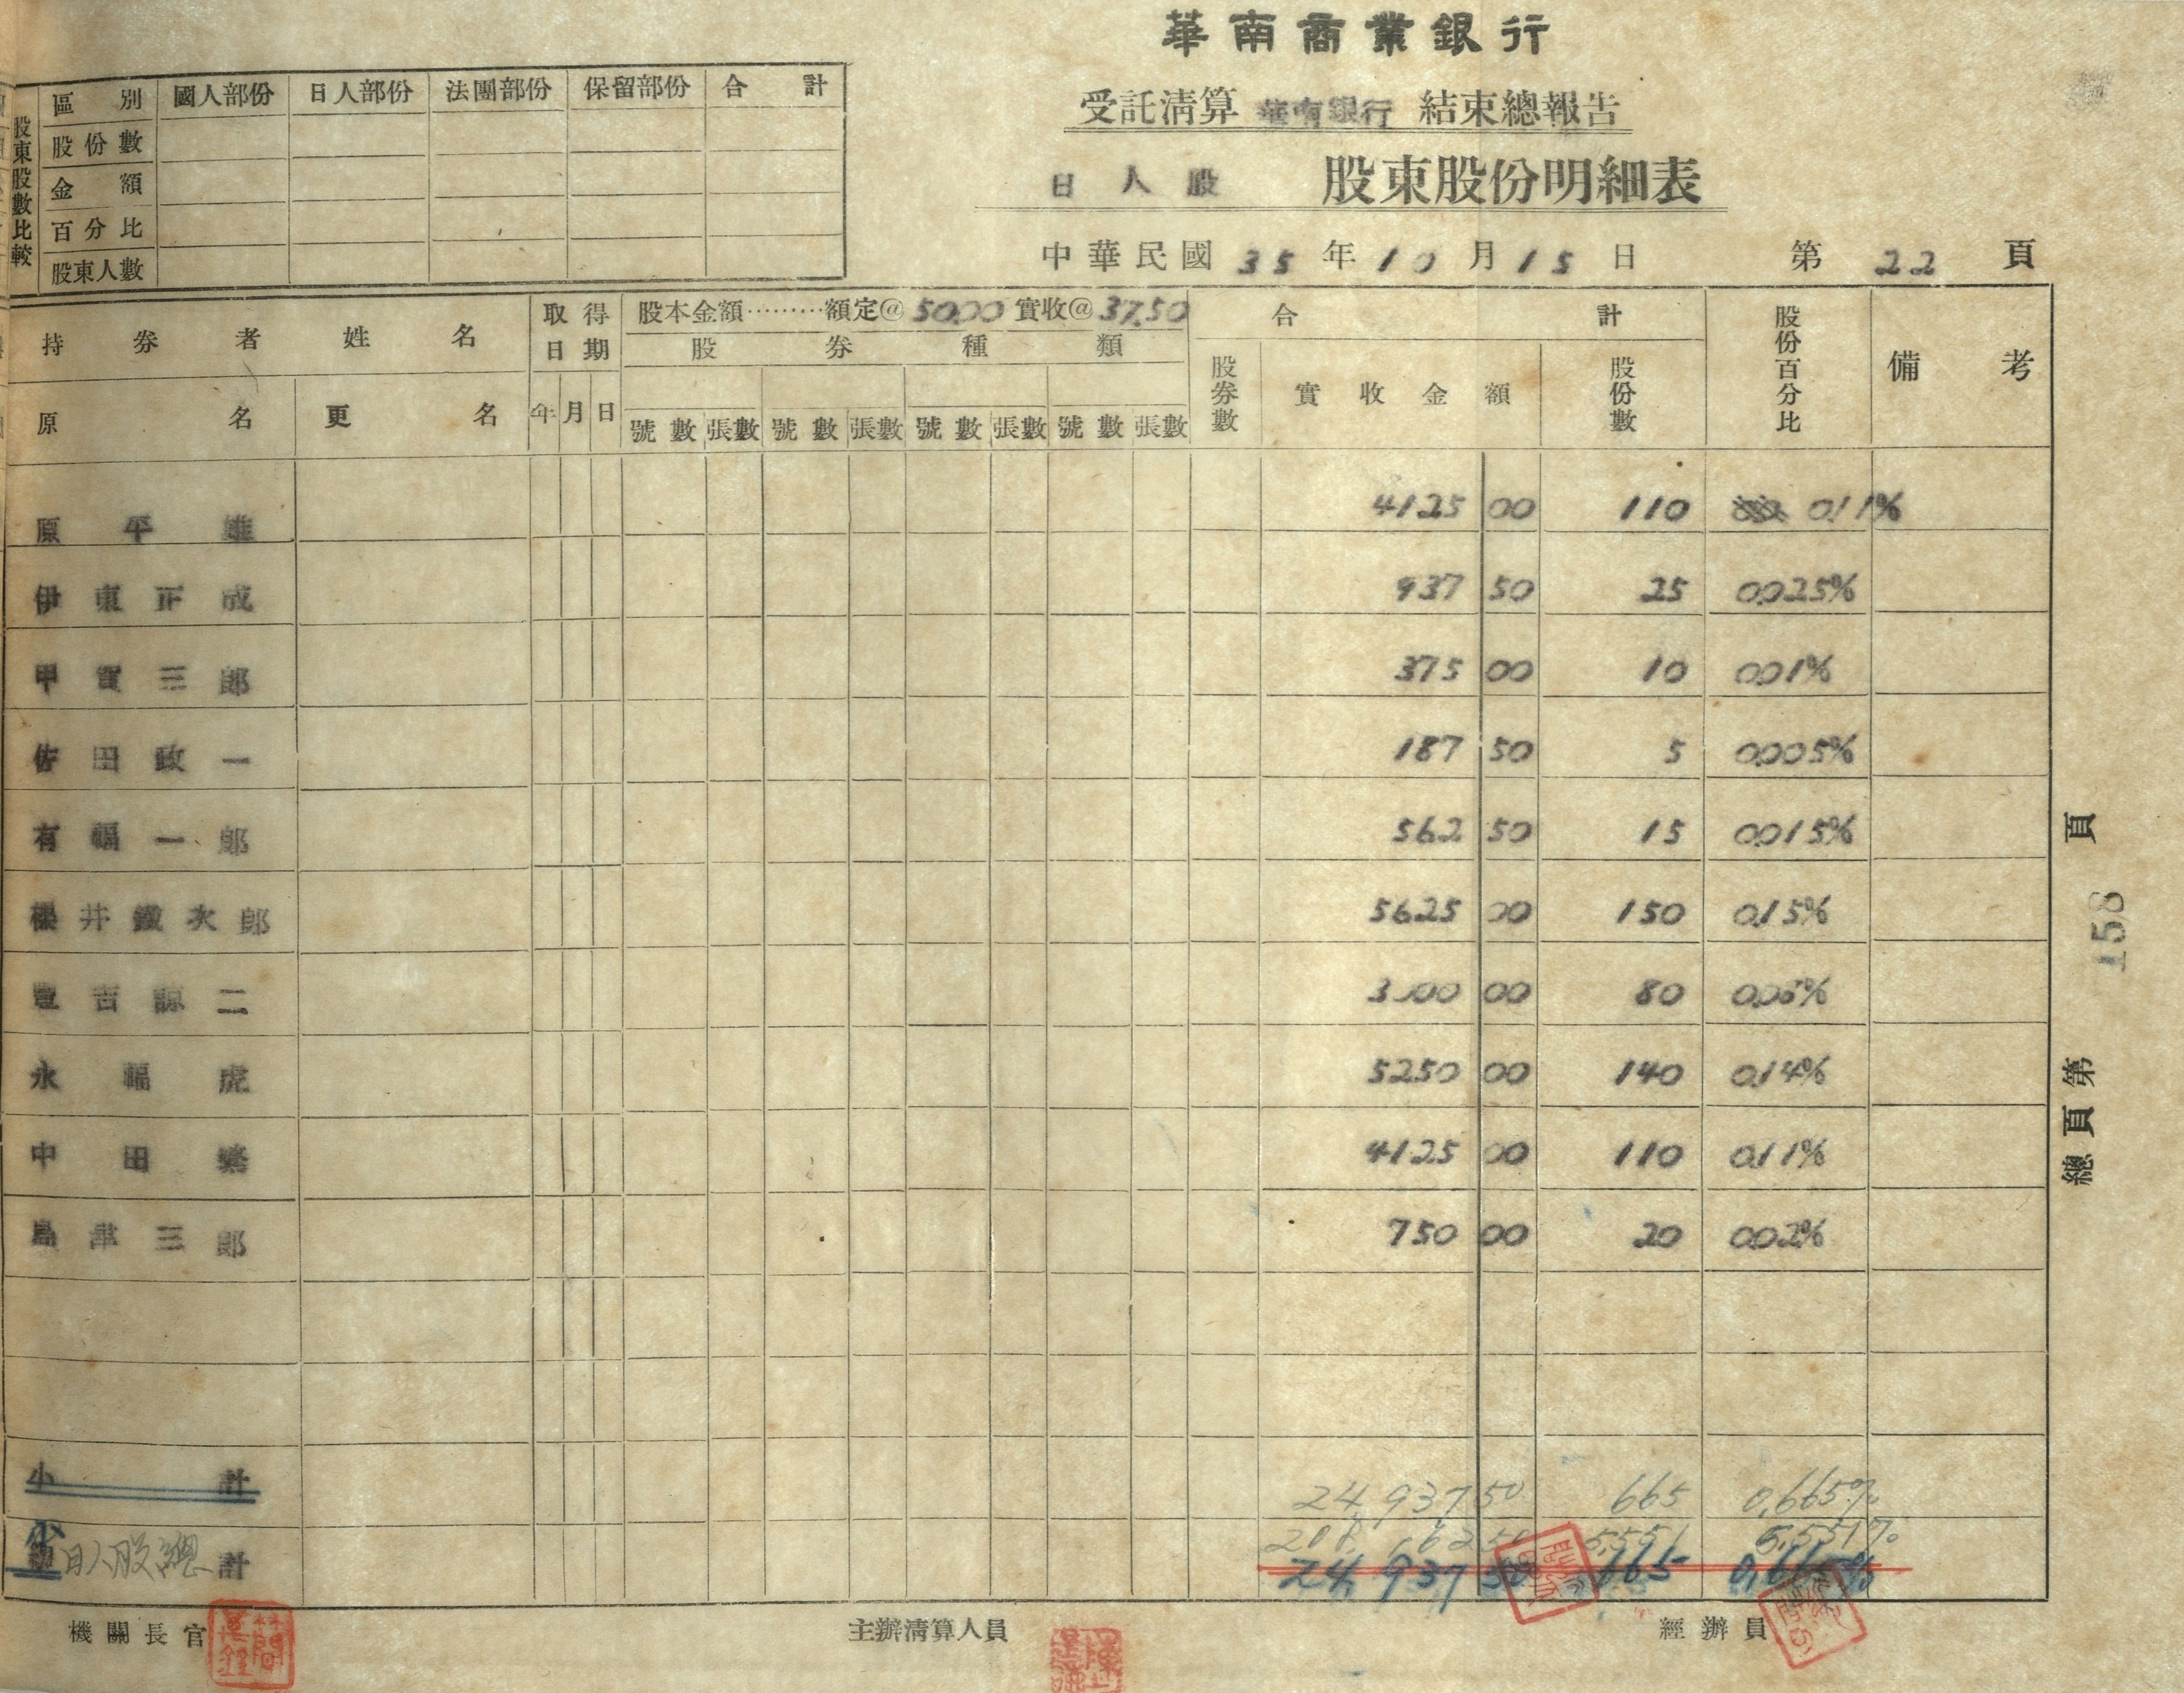 華南商業銀行
受託清算 華南銀行 結束總報告
日人股 股東股份明細表
中華民國 35 年 10 月 15 日 第 22 頁
股東股數比較
區別 國人部份 日人部份 法團部份 保留部份 合計
股份數
金額
百分比
股東人數
持券者姓名 取得日期 股本金額………額定@ 50.00 實收@ 37.50 合計 股份百分比 備考
股券種類
原名 更名 年 月 日 號數 張數 號數 張數 號數 張數 號數 張數 股券數 實收金額 股份數
原平雄 4125 00 110 0.11%
伊東正成 937 50 25 0.025%
甲賀三郎 375 00 10 0.01%
佐田政一 187 50 5 0.005%
有福一郎 562 50 15 0.015%
櫻井鐵次郎 5625 00 150 0.15%
吉諒二 3000 00 80 0.08%
永福虎 5250 00 140 0.14%
中田 4125 00 110 0.11%
島津三郎 750 00 20 0.02%
小計 24,937 50 665 0.665%
日人股總計 5,551 5.551%
24,937 50 665 0.665%
機關長官 主辦清算人員 經辦員
總頁第 158 頁